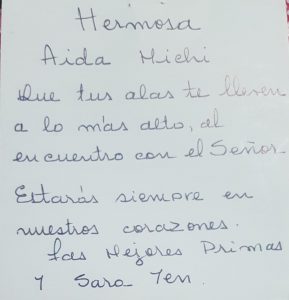 Hermosa
Aida Michi
Que tus alas te lleven
a lo más alto, al
encuentro con el Señor.
Estarás siempre en
nuestros corazones.
Las Mejores Primas
y Sara Yen.